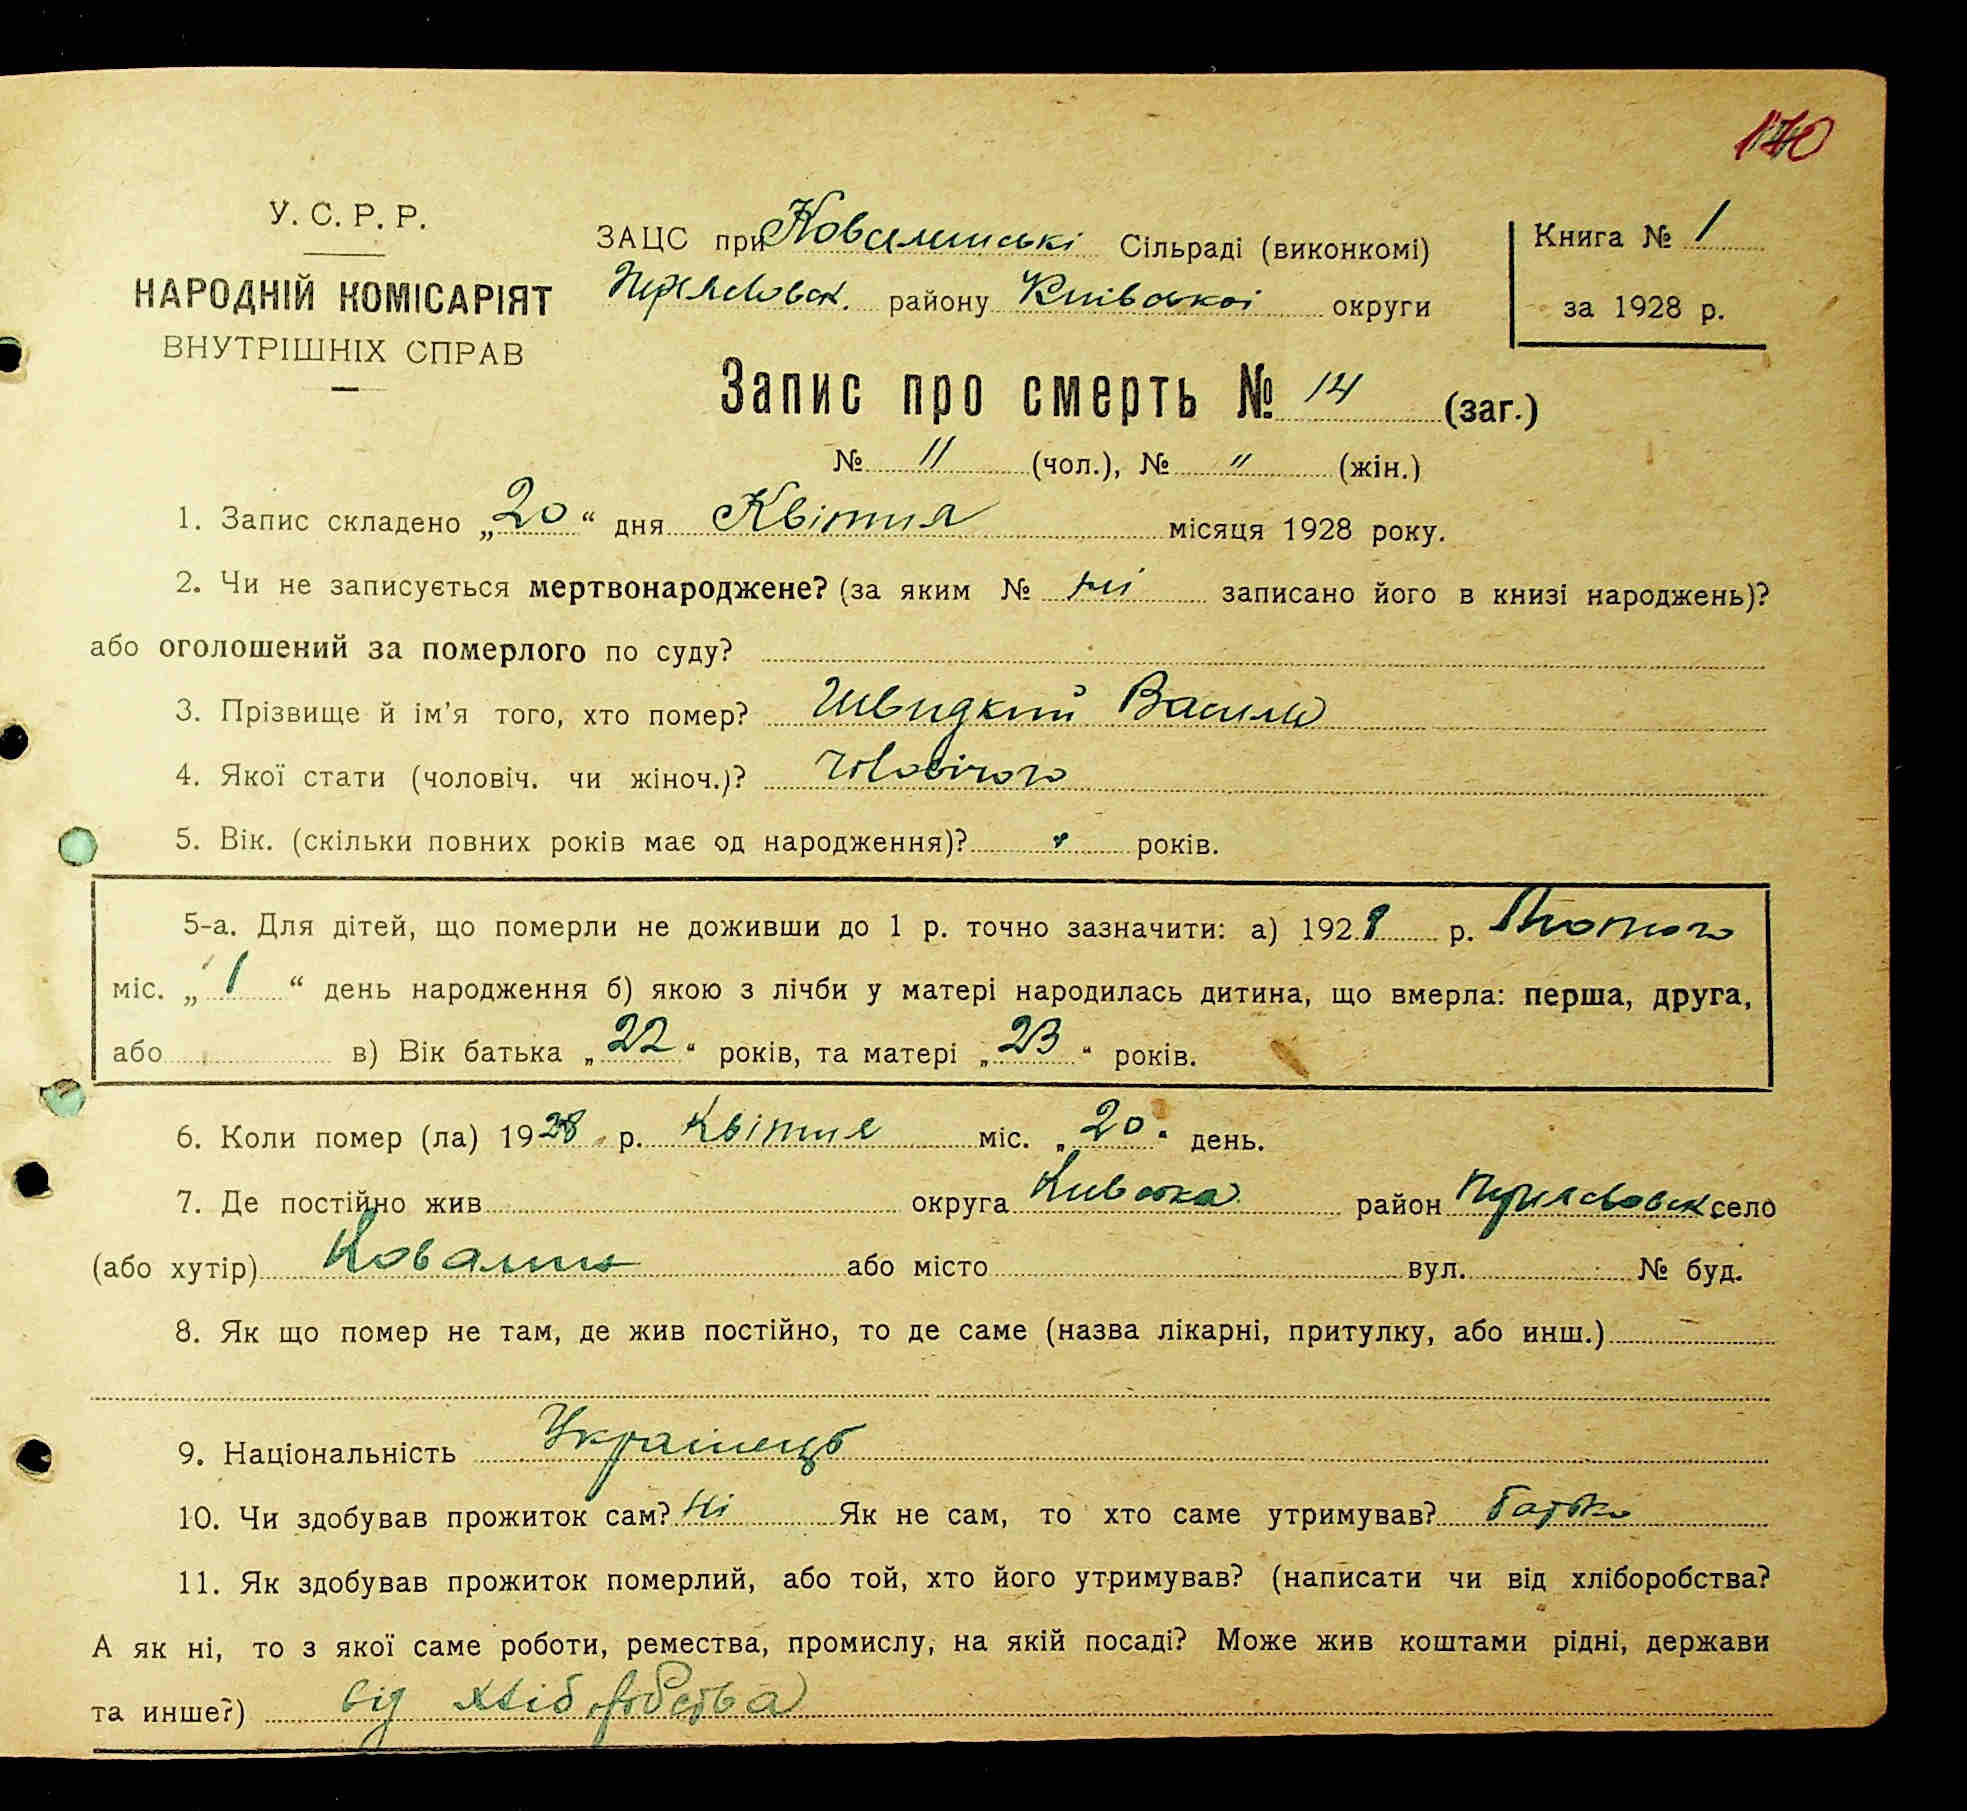 140
У. С. Р. Р.
НАРОДНІЙ КОМІСАРІЯТ
ВНУТРІШНІХ СПРАВ
ЗАЦС при Ковалинські Сільраді (виконкомі)
Переясловськ. району Київської округи
Книга № 1
за 1928 р.
Запис про смерть № 14 (заг.)
№ 11 (чол.), № " (жін.)
1. Запис складено „20“ дня Квітня місяця 1928 року.
2. Чи не записується мертвонароджене? (за яким № ні записано його в книзі народжень)?
або оголошений за померлого по суду?
3. Прізвище й ім’я того, хто помер? Швидкий Василь
4. Якої стати (чоловіч. чи жіноч.)? Чловічого
5. Вік. (скільки повних років має од народження)? " років.
5-а. Для дітей, що померли не доживши до 1 р. точно зазначити: а) 1928 р. Лютого
міс. „1“ день народження б) якою з лічби у матері народилась дитина, що вмерла: перша, друга,
або в) Вік батька „22“ років, та матері „23“ років.
6. Коли помер (ла) 1928 р. Квітня міс. „20“ день.
7. Де постійно жив округа Київська район Переясловськ село
(або хутір) Ковалин або місто вул. № буд.
8. Як що помер не там, де жив постійно, то де саме (назва лікарні, притулку, або инш.)
9. Національність Українець
10. Чи здобував прожиток сам? Ні Як не сам, то хто саме утримував? Батько
11. Як здобував прожиток померлий, або той, хто його утримував? (написати чи від хліборобства?
А як ні, то з якої саме роботи, ремества, промислу, на якій посаді? Може жив коштами рідні, держави
та инше?) від хліборобства